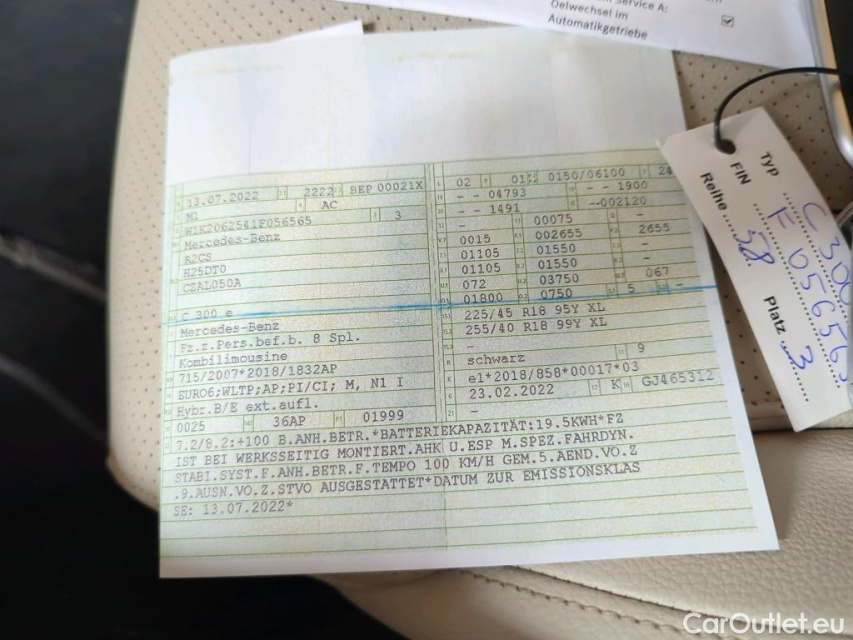 Service A:
Oelwechsel im
Automatikgetriebe
13.07.2022 2222 BEP 00021X
M1 AC
W1K2062541F056565 3
Mercedes-Benz
R2CS
H25DT0
CZAL050A
C 300 e
Mercedes-Benz
Fz.z.Pers.bef.b. 8 Spl.
Kombilimousine
715/2007*2018/1832AP
EURO6;WLTP;AP;PI/CI; M, N1 I
Hybr.B/E ext.aufl.
0025 36AP 01999
02 01 0150/06100 24
- - 04793 - - 1900
- - 1491 --002120
- 00075
0015 002655 2655
01105 01550 -
01105 01550 -
072 03750 067
01800 0750 5 -
225/45 R18 95Y XL
255/40 R18 99Y XL
-
schwarz 9
e1*2018/858*00017*03
23.02.2022 K GJ465312
-
7.2/8.2:+100 B.ANH.BETR.*BATTERIEKAPAZITÄT:19.5KWH*FZ
IST BEI WERKSSEITIG MONTIERT.AHK U.ESP M.SPEZ.FAHRDYN.
STABI.SYST.F.ANH.BETR.F.TEMPO 100 KM/H GEM.5.AEND.VO.Z
.9.AUSN.VO.Z.STVO AUSGESTATTET*DATUM ZUR EMISSIONSKLAS
SE: 13.07.2022*
Typ C300
FIN F056565
Reihe 58 Platz 3
CarOutlet.eu